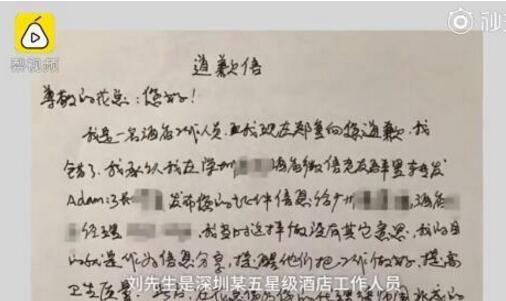 梨视频
秒
道歉信
尊敬的花总：您好！
我是一名酒店工作人员，我现在郑重向您道歉，我
错了，我承认我在深圳 酒店微信 群里转发
Adam 发布您的证件信息给广州 酒店
经理 ，我当时这样做没有其它意思，我的目
的仅是作为信息分享，提醒他们把工作做好，提高
卫生质量
刘先生是深圳某五星级酒店工作人员